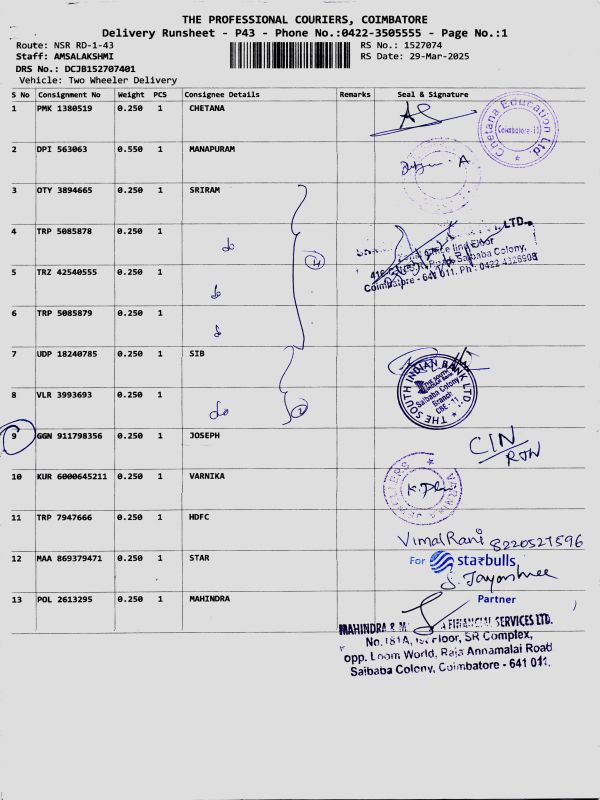 THE PROFESSIONAL COURIERS, COIMBATORE
Delivery Runsheet - P43 - Phone No.:0422-3505555 - Page No.:1
Route: NSR RD-1-43
RS No.: 1527074
Staff: AMSALAKSHMI
RS Date: 29-Mar-2025
DRS No.: DCJB152707401
Vehicle: Two Wheeler Delivery
S No Consignment No Weight PCS Consignee Details Remarks Seal & Signature
1 PMK 1380519 0.250 1 CHETANA
Chetana Education Ltd.
Coimbatore-11
2 DPI 563063 0.550 1 MANAPURAM
3 OTY 3894665 0.250 1 SRIRAM
4 TRP 5085878 0.250 1 do
4
LTD.
Floor
Saibaba Colony,
Coimbatore - 641 011. Ph: 0422 4326908
5 TRZ 42540555 0.250 1 do
6 TRP 5085879 0.250 1 do
7 UDP 18240785 0.250 1 SIB
THE SOUTH INDIAN BANK LTD.
THE SOUTH INDIAN BANK
Saibaba Colony
Branch
CBE - 11
8 VLR 3993693 0.250 1 do
2
9 GGN 911798356 0.250 1 JOSEPH
CIN
RTN
10 KUR 6000645211 0.250 1 VARNIKA
VARNIKA JEWELLERS
11 TRP 7947666 0.250 1 HDFC
Vimal Rani 8220527596
12 MAA 869379471 0.250 1 STAR
For starbulls
S. Jayashree
Partner
13 POL 2613295 0.250 1 MAHINDRA
MAHINDRA & M A FINANCIAL SERVICES LTD.
No.181A, 1st Floor, SR Complex,
opp. Loom World, Raja Annamalai Road
Saibaba Colony, Coimbatore - 641 011.